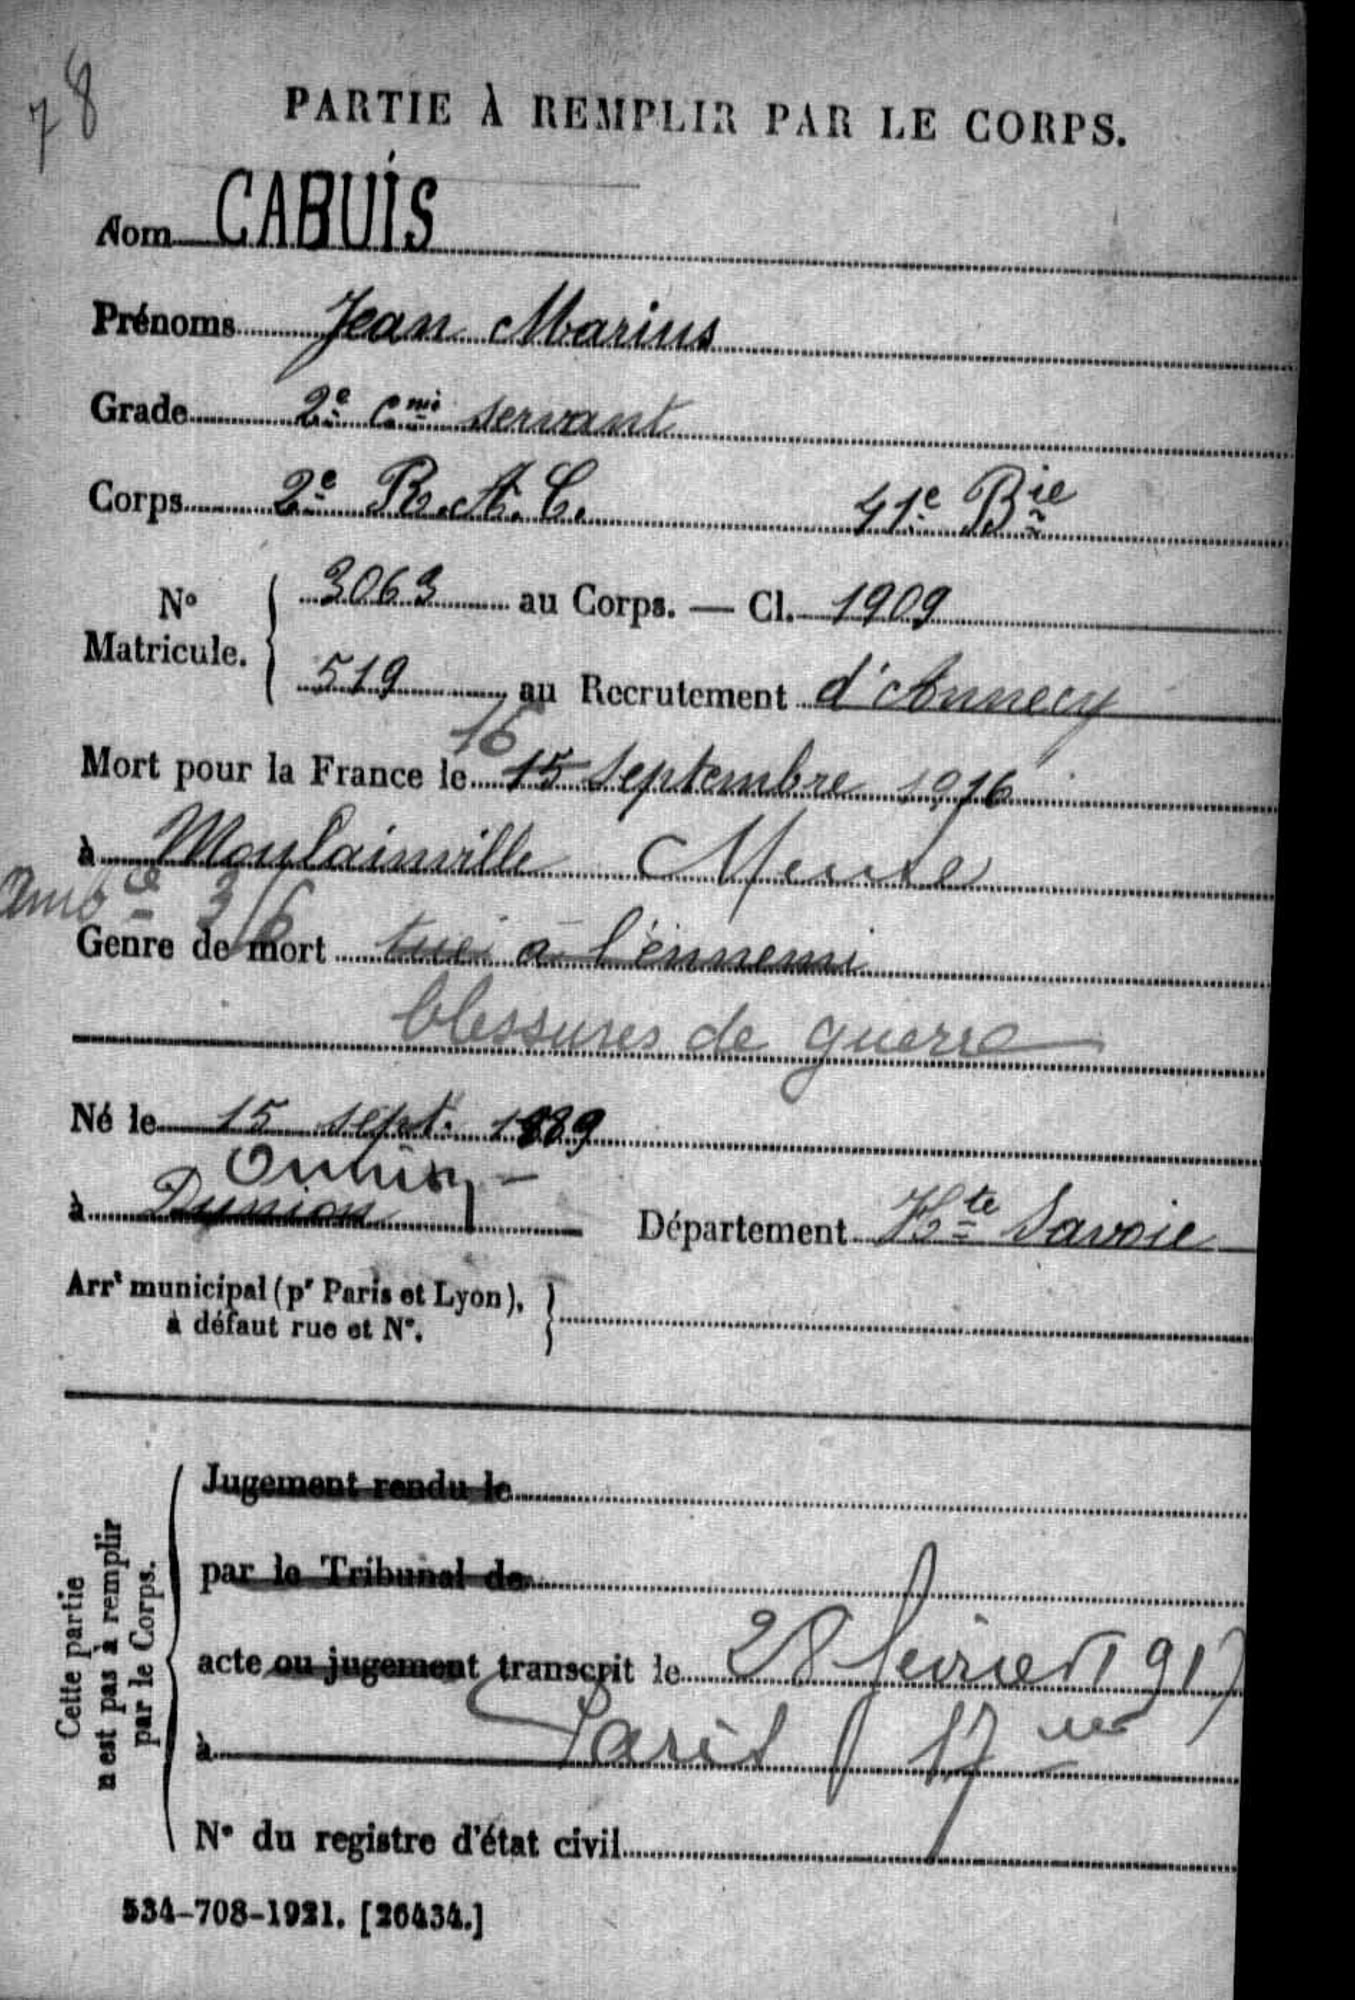 78
PARTIE À REMPLIR PAR LE CORPS.
Nom CABUIS
Prénoms Jean Marius
Grade 2e Cni servant
Corps 2e R.A.C. 41e Bie
No Matricule. 3063 au Corps. — Cl. 1909
519 au Recrutement d'Annecy
16
Mort pour la France le 15 septembre 1916
à Moulainville Meuse
Ambce 3/6
Genre de mort tué à l'ennemi
blessures de guerre
Né le 15 sept. 1889
Onnion
à Dynion Département Hte Savoie
Arrt municipal (pr Paris et Lyon), à défaut rue et No.
Cette partie n'est pas à remplir par le Corps.
Jugement rendu le
par le Tribunal de
acte ou jugement transcrit le 28 février 1917
à Paris 17me
No du registre d'état civil
534-708-1921. [26434.]